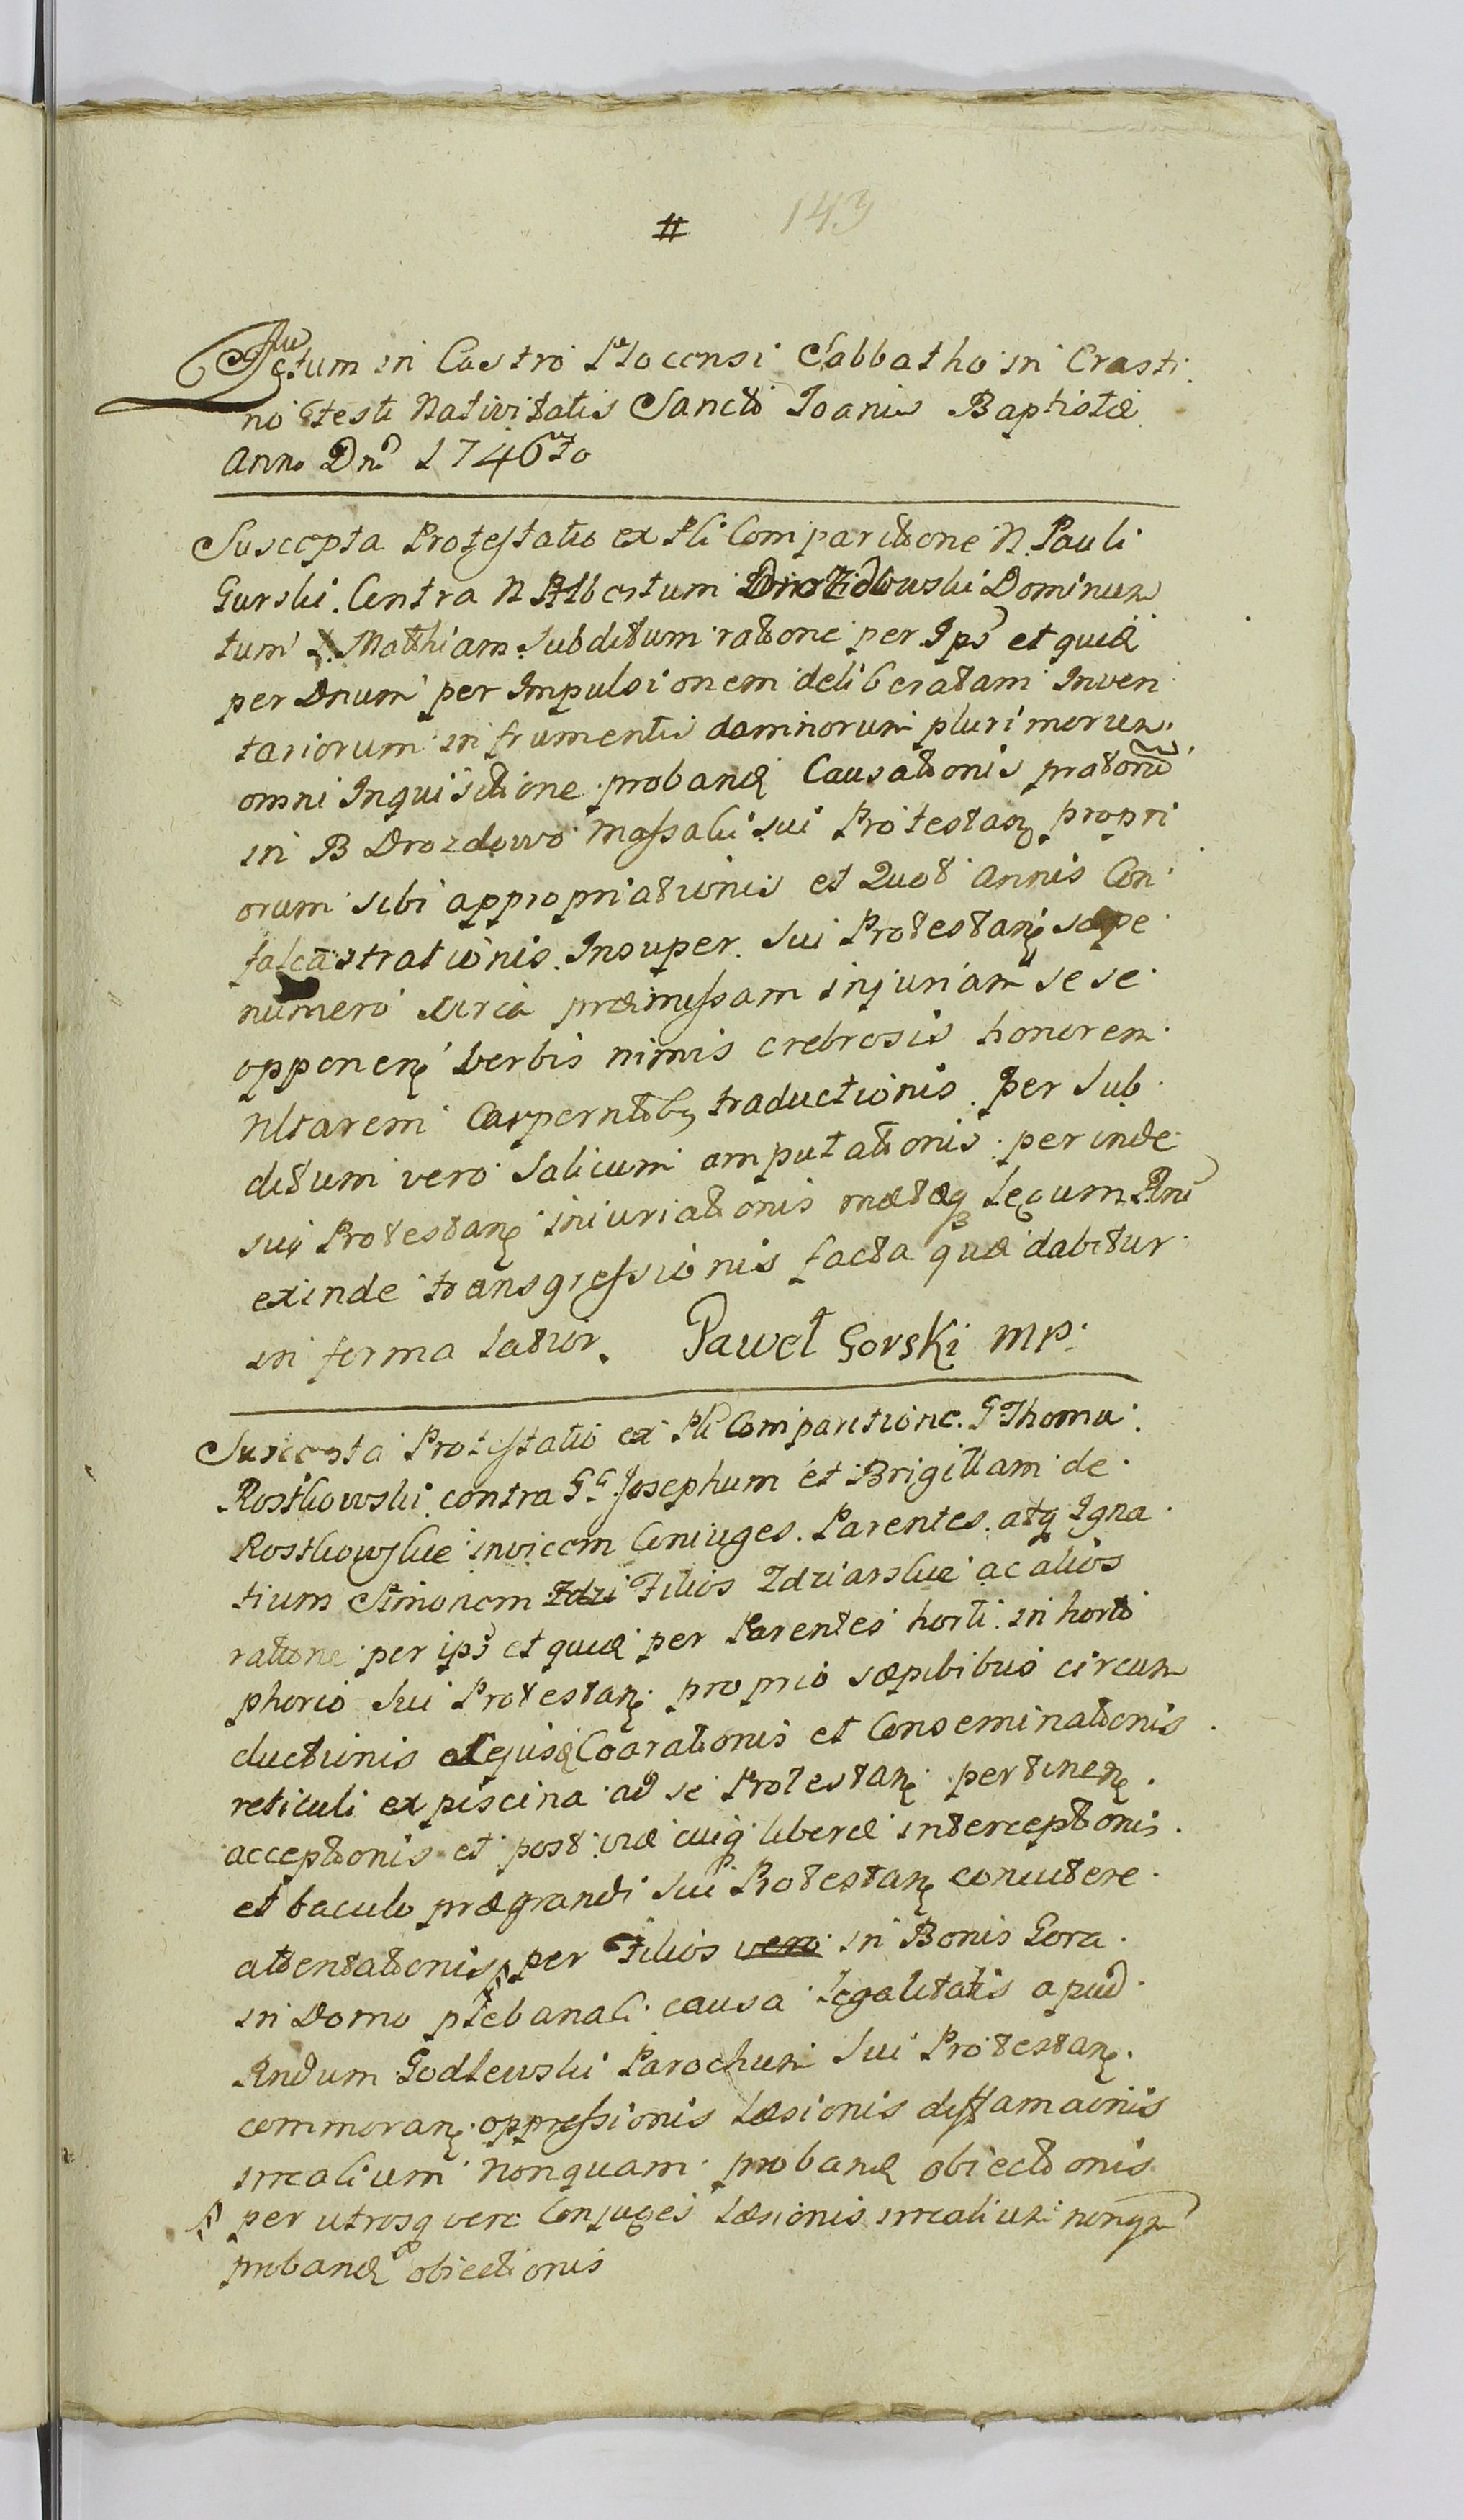 # 143
Actum in Castro Plocensi Sabbatho in Crasti
no Festi Nativitatis Sancti Joanis Baptistæ
Anno Dni 1746to
Suscepta Protestatio ex Pli Comparitione N. Pauli
Gurski. Contra N Albertum Drozdowski Dominum
tum Mathiam Subditum ratione per Ips et quid
per Dnum per Impulsionem deliberatam Inven
tariorum in frumentis damnorum plurimorum
omni Inquisitione proband Causationis pratorum
in B Drozdowo Massaki sui Protestan propri
orum sibi appropriationis et Quot annis Con
falcastrationis. Insuper. Sui Protestan sæpe
numero circa præmissam injuriam se se
opponen verbis nimis crebrosis honorem
Nltarem Carpentibq traductionis. per Sub
ditum vero Salicum amputationis. perinde
sui Protestan iniuriationis metæq Legum Rni
exinde transgressionis facta quæ dabitur
in forma Latior. Paweł Gorski mp.
Suscepta Protestatio ex Pli Comparitione. G Thomæ
Rostkowski contra GG Josephum et Brigittam de
Rostkowskie invicem Coniuges. Parentes. atq Igna
tium Simonem Zdzi Filios Zdziarskie ac alios
ratione per ips et quid per Parentes horti in horto
phorio sui Protestan proprio sæpibibus circum
ductionis et ejusd Coarationis et Conseminationis
reticuli ex piscina ad se Protestan pertinen
acceptionis et post viæ cuiq liberæ interceptionis.
et baculo prægrandi sui Protestan concutere
attentationis per Filios vero in Bonis Gora
in Domo plebanali causa Legalitatis apud
Rndum Godlewski Parochum Sui Protestan
commoran oppressionis Læsionis diffamaonis
irrealium nonquam proband obiectionis
per utrosq vero Conjuges Læsionis irrealium nonqm
proband obiectionis